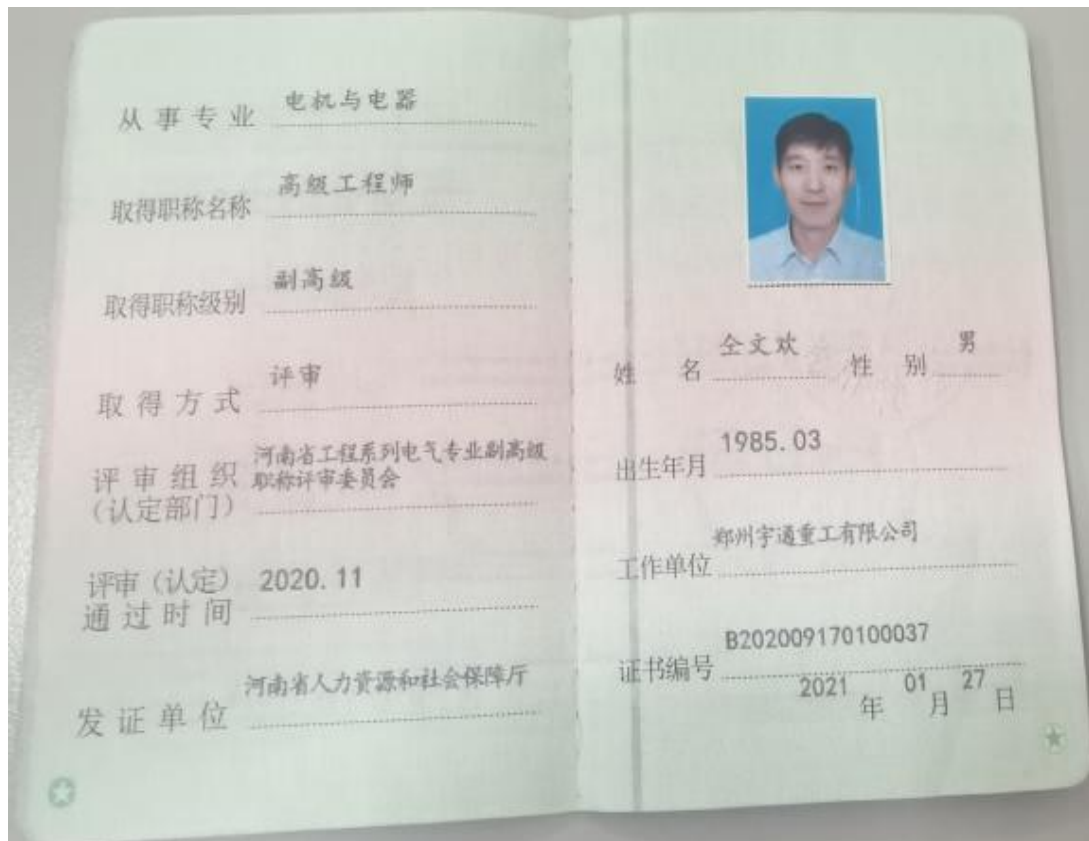 从事专业 电机与电器
取得职称名称 高级工程师
取得职称级别 副高级
取得方式 评审
评审组织 河南省工程系列电气专业副高级
(认定部门) 职称评审委员会
评审(认定) 2020.11
通过时间
发证单位 河南省人力资源和社会保障厅
姓名 仝文欢 性别 男
出生年月 1985.03
工作单位 郑州宇通重工有限公司
证书编号 B202009170100037
2021年01月27日